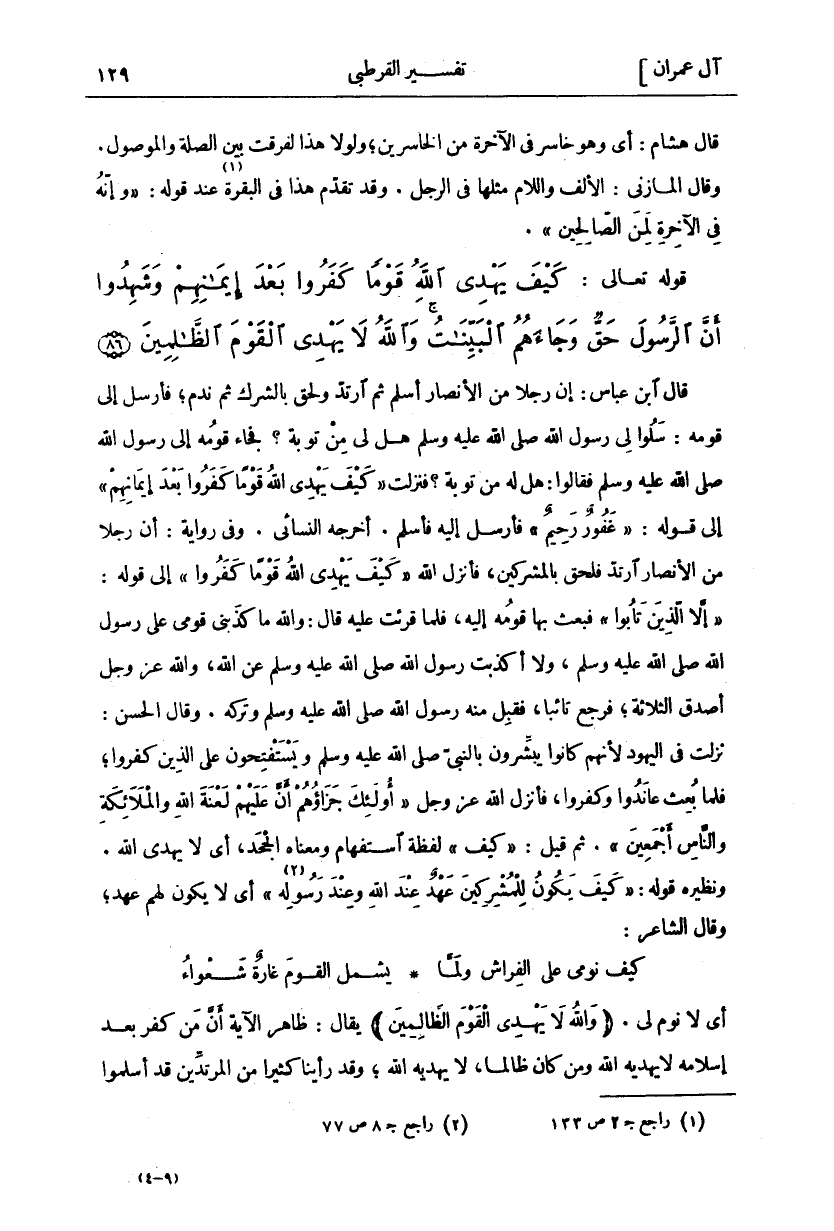 آل عمران ] تفســـير القرطبى ١٢٩
قال هشام : أى وهو خاسر فى الآخرة من الخاسرين؛ ولولا هذا لفرقت بين الصلة والموصول .
وقال المـازنى : الألف واللام مثلها فى الرجل . وقد تقدّم هذا فى البقرة عند قوله (١) : « و إنّهُ
فِى الآخِرةِ لَمِنَ الصَّالِحِين » .
قوله تعـالى : كَيْفَ يَهْدِى ٱللَّهُ قَوْمًا كَفَرُوا بَعْدَ إِيمَـٰنِهِمْ وَشَهِدُوا
أَنَّ ٱلرَّسُولَ حَقٌّ وَجَآءَهُمُ ٱلْبَيِّنَـٰتُ ۚ وَٱللَّهُ لَا يَهْدِى ٱلْقَوْمَ ٱلظَّـٰلِمِينَ ٨٦
قال ٱبن عباس : إن رجلا من الأنصار أسلم ثم ٱرتدّ ولحق بالشرك ثم ندم؛ فأرسل إلى
قومه : سَلُوا لِى رسول الله صلى الله عليه وسلم هـل لى مِنْ توبة ؟ بفاء قومُه إلى رسول الله
صلى الله عليه وسلم فقالوا : هل له من توبة ؟ فنزلت « كَيْفَ يَهْدِى اللهُ قَوْمًا كَفَرُوا بَعْدَ إيمَانِهِمْ »
إلى قـوله : « غَفُورٌ رَحِيمٌ » فأرسـل إليه فأسلم . أخرجه النسائى . وفى رواية : أن رجلا
من الأنصار ٱرتدّ فلحق بالمشركين، فأنزل الله « كَيْفَ يَهْدِى اللهُ قَوْمًا كَفَرُوا » إلى قوله :
« إلَّا الَّذِينَ تَابُوا » فبعث بها قومُه إليه، فلما قرئت عليه قال : والله ما كذَبنى قومى على رسول
الله صلى الله عليه وسلم ، ولا أكذبت رسول الله صلى الله عليه وسلم عن الله، والله عز وجل
أصدق الثلاثة؛ فرجع تائبا، فقبِل منه رسول الله صلى الله عليه وسلم وتركه . وقال الحسن :
نزلت فى اليهود لأنهم كانوا يبشِّرون بالنبىّ صلى الله عليه وسلم ويَسْتَفْتِحون على الذين كفروا؛
فلما بُعث عانَدُوا وكفروا، فأنزل الله عز وجل « أُولَئِكَ جَزَاؤُهُمْ أَنَّ عَلَيْهِمْ لَعْنَةَ اللهِ والْمَلَائِكَةِ
والنَّاسِ أَجْمَعِينَ » . ثم قيل : « كيف » لفظة ٱسـتفهام ومعناه الجَحْد، أى لا يهدى الله .
ونظيره قوله : « كَيْفَ يَكُونُ لِلْمُشْرِكِينَ عَهْدٌ عِنْدَ اللهِ وعِنْدَ رَسُولِه » (٢) أى لا يكون لهم عهد؛
وقال الشاعر :
كيف نومى على الفِراش ولَمّـا * يشـمل القومَ غارةٌ شـعْواءُ
أى لا نوم لى . ﴿ وَاللهُ لَا يَهْـدِى الْقَوْمَ الظَّالِمِينَ ﴾ يقال : ظاهر الآية أنّ مَن كفر بعـد
إسلامه لا يهديه الله ومن كان ظالمـا، لا يهديه الله ؛ وقد رأينا كثيرا من المرتدِّين قد أسلموا
(١) راجع ج ٢ ص ١٣٣ (٢) راجع ج ٨ ص ٧٧
(٤-٩)